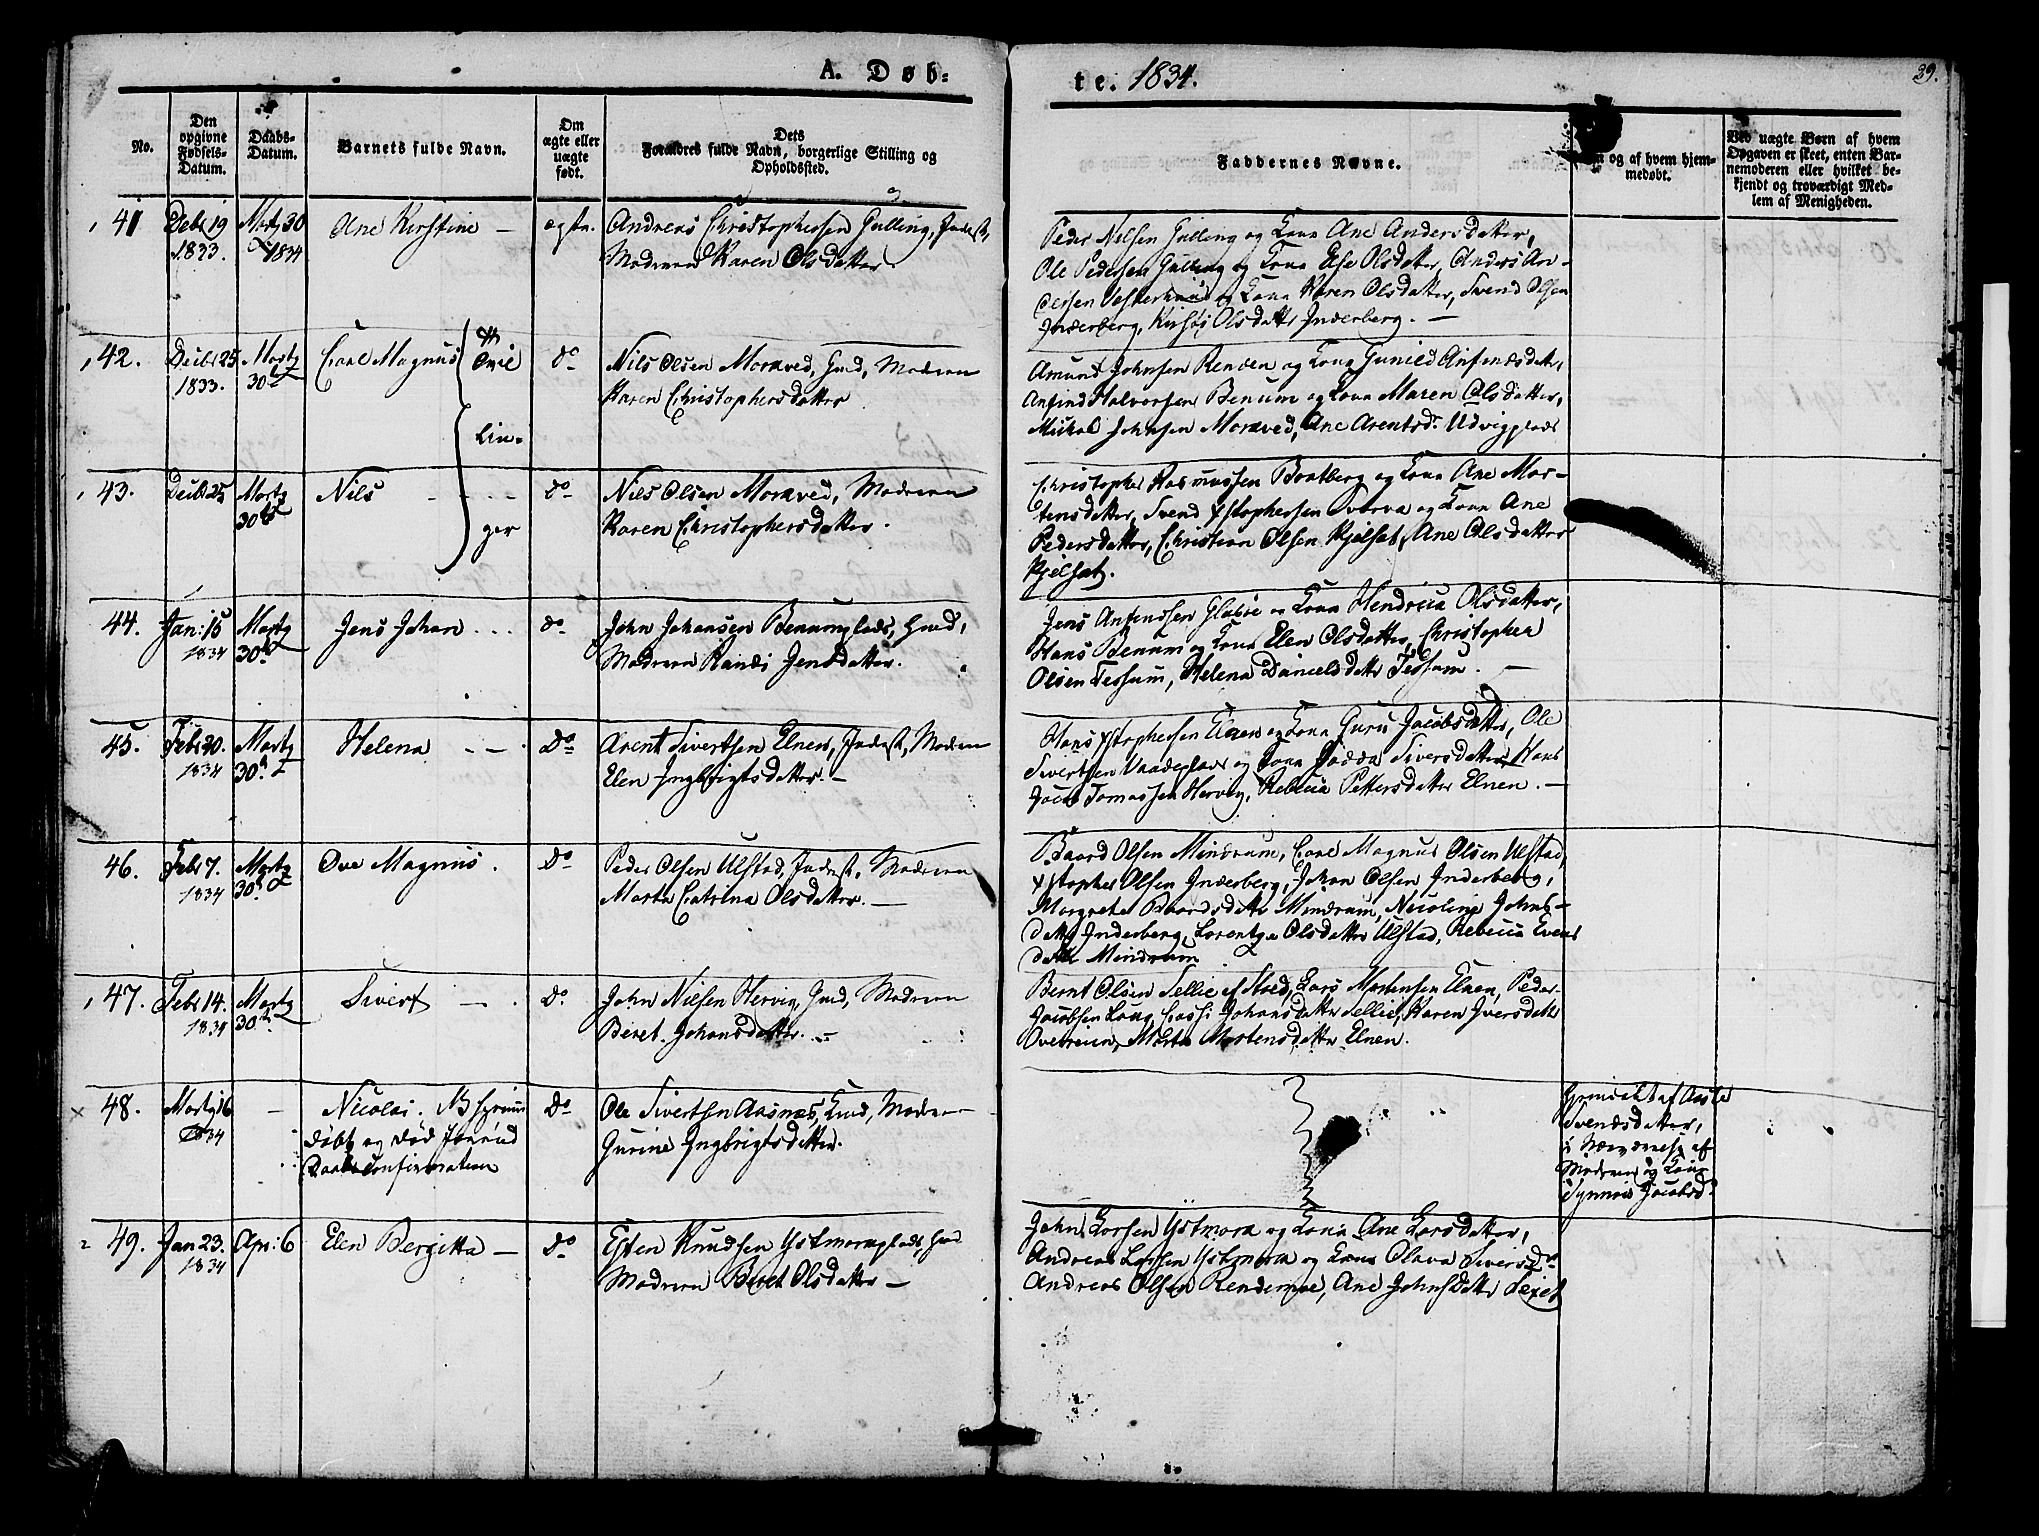 A. Døb=
te. 1834.
39.
No.
Den opgivne Fødsels-Datum.
Daabs-Datum.
Barnets fulde Navn.
Om ægte eller uægte født.
Dets Forældres fulde Navn, borgerlige Stilling og Opholdssted.
Faddernes Navne.
og af hvem hjem-
medøbt.
Ved uægte Børn af hvem
Opgaven er skeet, enten Bar-
nemoderen eller hvilket be-
kjendt og troværdigt Med-
lem af Menigheden.
41 Debr 19 Martz 30 Ane Kirstine — ægte. Andreas Christophersen Gulling, Inderst,
1833. 1834 Moderen Karen Olsdatter.
Peder Nilsen Gulling og Kona Ane Andersdatter,
Ole Pedersen Gulling og Kona Else Olsdatter, Anders An-
dersen og Kona Karen Olsdatter, Svend Olsen
Inderberg, Olsdatter Inderberg. —
42. Decbr 25 Martz Carl Magnus do Nils Olsen Moraved, Gmd, Moderen
1833. 30te Karen Christophersdatter
Tvil
Lin-
ger
Amund Johnsen Renden og Kona Gunild Anfindsdatr,
Anfind Halvorsen Benum og Kona Maren Olsdatter,
Mikal Johnsen Moraved, Ane Arentsdr.
43. Decbr 25 Martz Nils - - - do Nils Olsen Moraved, Moderen
30te Karen Christophersdatter.
Christopher Rasmussen Bratberg og Kona Ane Mor-
tensdatter, Svend Xstophersen Tvorva og Kona Ane
Pedersdatter, Christian Olsen Kjelsat, Ane Olsdatter
Kjelsat.
44. Jan: 15 Martz Jens Johan ... do John Johansen Benumplads, Hmd,
1834 30te Moderen Randi Jensdatter.
Jens Anfindsen og Kona Hendrica Olsdatter,
Hans Benum og Kona Elen Olsdatter, Christopher
Olsen Tessum, Helena Danielsdattr Tessum. —
45. Febr 20. Martz Helena - - . do Arent Sivertsen Elnen, Inderst, Moderen
1834 30te Elen Ingbrigtsdatter. —
Hans Xstophersen Elnen og Kona Guru Jacobsdatter, Ole
Sivertsen og Kona Siversdatter, Hans
Jacob Tomassen Hervig, Rebecca Pettersdatter Elnen. —
46. Febr 7. Martz Ove Magnus. do Peder Olsen Ulstad, Inderst, Moderen
1834 30te Marta Catrina Olsdatter. —
Baard Olsen Mindrum, Carl Magnus Olsen Ulstad,
Xstopher Olsen Inderberg, Johan Olsen Inderberg,
Margreta Baardsdattr Mindrum, Nicoline Johns-
datter Inderberg, Lorentza Olsdatter Ulstad, Rebecca Evens
datter Mindrum
47. Febr 14. Martz Sivert — . do John Nielsen Hervig, Gmd, Moderen
1834 30te Beret Johansdatter. —
Bernt Olsen Sellie, Lars Mortensen Elnen, Peder
Jacobsen Johansdatter Sellie, Karen Iversdatter
Overrein, Marta Mortensdatter Elnen.
48. Martz 16 — Nicolai. NB hjemme do Ole Sivertsen Aasnæs, Moderen
1834 døbt og død forend Gurine Ingbrigtsdatter.
Daabsconfirmation
Svendsdatter,
i Nærværelse af
Moderen og Kona
Jacobsd.
49. Jan 23. Apr: 6 Elen Bergitta — do Esten Knudsen Ystmoraplads, Hmd
1834 Moderen Beret Olsdatter —
John Larsen Ystmora og Kona Ane Larsdatter,
Andreas Larsen Ystmora og Kona Olava Siversdr
Andreas Olsen Rendemoe, Ane Johnsdatter